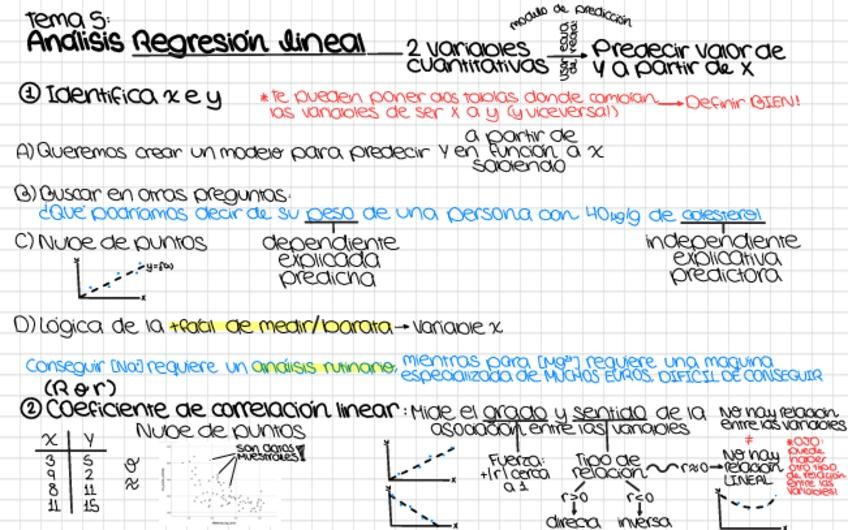 Tema 5:
Análisis Regresión lineal
2 variables cuantitativas
modelo de predicción
Predecir valor de y a partir de x
① Identifica x e y
*Te pueden poner dos tablas donde cambian las variables de ser x a y (y viceversa!)
Definir BIEN!
A) Queremos crear un modelo para predecir y en función a x
a partir de
sabiendo
B) Buscar en otras preguntas.
¿Qué podríamos decir de su peso de una persona con 40µg/g de colesterol
dependiente
explicada
predicha
independiente
explicativa
predictora
C) Nube de puntos
y
y=f(x)
x
D) Lógica de la +fácil de medir/barata → variable x
Conseguir [Na] requiere un análisis rutinario, mientras para [Mg²⁺] requiere una maquina
especializada de MUCHOS EUROS, DIFICIL DE CONSEGUIR
(R o r)
② Coeficiente de correlación linear: Mide el grado y sentido de la
asociación entre las variables
x y
3 5
9 2
8 11
11 15
Nube de puntos
son datos
muestrales!
y
x
x
Fuerza:
+|r| cerca
a 1
Tipo de
relación
r>0
directa
r<0
inversa
r≈0
No hay relación
entre las variables
≠
No hay
relación
LINEAL
*OJO:
puede
haber
otro tipo
de relación
entre las
variables!
x